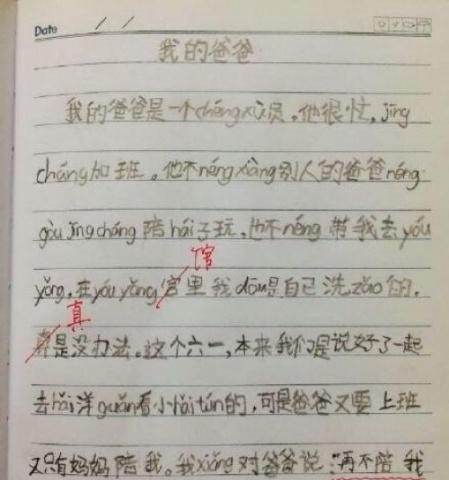 Date / /
我的爸爸
我的爸爸是一个chéngxù员。他很忙,jīng
cháng加班。他不néngxiàng别人的爸爸néng
gòu jīngcháng陪hái子玩,也不néng带我去yóu
馆
yǒng,在yóuyǒng官里我dōu是自己洗zǎo的,
真
是没办法。这个六一,本来我们是说好了一起
去hǎi洋guǎn看小hǎitún的,可是爸爸又要上班
又只有妈妈陪我。我xiǎng对爸爸说:“再不陪我